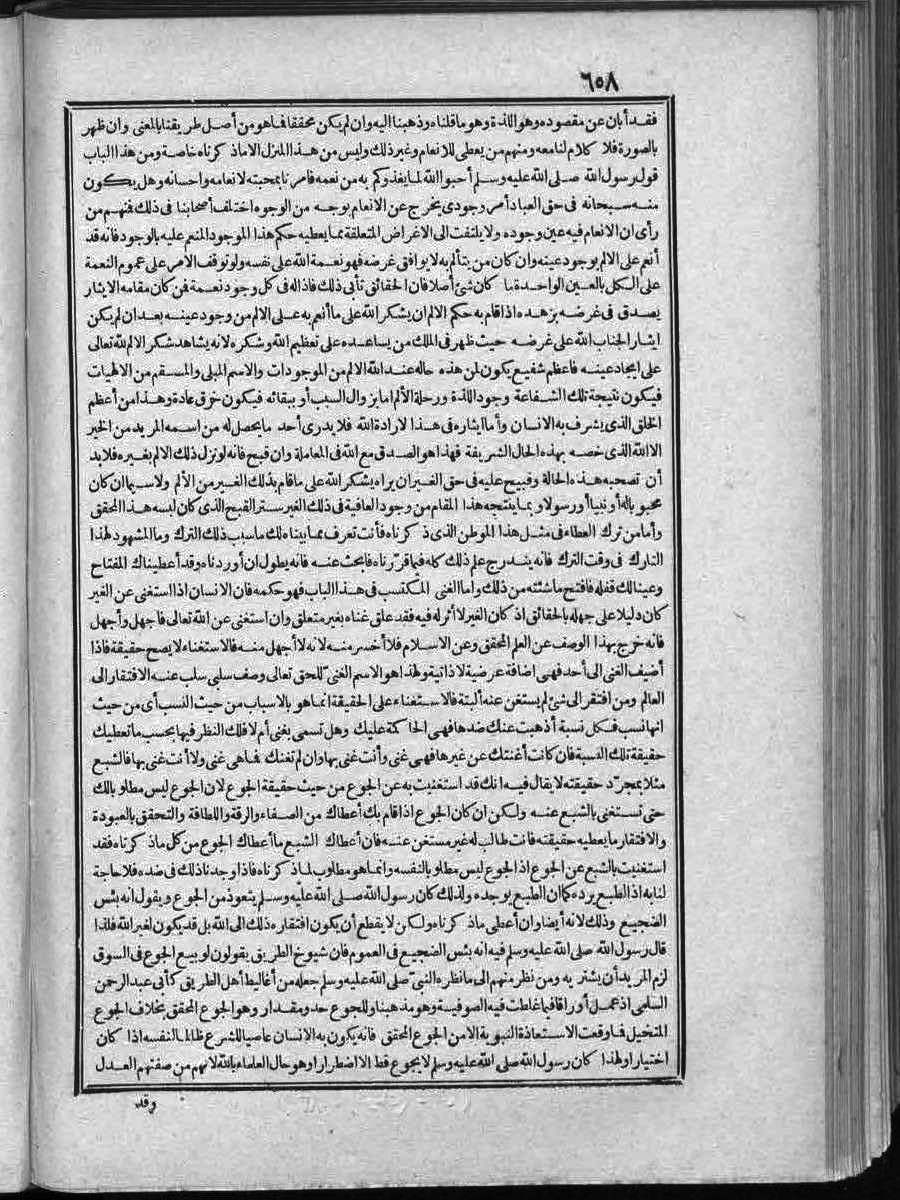 ٦٥٨
فقد أبان عن مقصوده وهو اللذة وهو ما قلناه وذهبنا اليه وان لم يكن محققا فما هو من أصل طريقنا بالمعنى وان ظهر
بالصورة فلا كلام لنا معه ومنهم من يعطى للانعام وغير ذلك وليس من هذا المنزل الاماذ كرناه خاصة ومن هذا الباب
قول رسول الله صلى الله عليه وسلم أحبوا الله لما يغذوكم به من نعمه فامر نا بمحبته لانعامه واحسانه وهل يكون
منه سبحانه فى حق العباد أمر وجودى يخرج عن الانعام بوجه من الوجوه اختلف أصحابنا فى ذلك فنهم من
رأى ان الانعام فيه عين وجوده ولا يلتفت الى الاغراض المتعلقة مما يعطيه حكم هذا الموجود المنعم عليه بالوجود فانه قد
أنعم على الالم بوجود عينه وان كان من يتألم به لا يوافق غرضه فهو نعمة الله على نفسه ولو توقف الامر على عموم النعمة
على الكل بالعين الواحدة ما كان شئ أصلا فان الحقائق تأبى ذلك فاذا له فى كل وجود نعمة فمن كان مقامه الايثار
يصدق فى غرضه بزهده اذا قام به حكم الالم ان يشكر الله على ما أنعم به على الالم من وجود عينه بعد ان لم يكن
ايثار الجناب الله على غرضه حيث ظهر فى الملك من يساعده على تعظيم الله وشكره لانه يشاهد شكر الالم لله تعالى
على ايجاد عينه فاعظم شفيع يكون لمن هذه حاله عند الله الالم من الموجودات والاسم المبلى والمسقم من الالهيات
فيكون نتيجة تلك الشفاعة وجود اللذة ورحلة الألم اما بزوال السبب أو ببقائه فيكون خرق عادة وهذا من أعظم
الخلق الذى يشرف به الانسان وأما ايثاره فى هذا لارادة الله فلا يدرى أحد ما يحصل له من اسمه المريد من الخير
الا الله الذى خصه بهذه الحال الشريفة فهذا هو الصدق مع الله فى المعاملة وان قبح فانه لو نزل ذلك الالم بغيره فلابد
أن تصحبه هذه الحالة وقبيح عليه فى حق الغير ان يراه يشكر الله على ما قام بذلك الغير من الألم ولا سيما ان كان
محبوباله أو نبيا أو رسولا وبما ينتجه هذا المقام من وجود العافية فى ذلك الغير ستر القبح الذى كان لبسه هذا المحقق
وأما من ترك العطاء فى مثل هذا الموطن الذى ذكرناه فأنت تعرف مما بيناه لك ما سبب ذلك الترك وما المشهود لهذا
التارك فى وقت الترك فانه يندرج علم ذلك كله فيما قررناه فابحث عنه فانه يطول ان أوردناه وقد أعطيناك المفتاح
وعينا لك قفله فافتح ما شئته من ذلك وأما الغنى المكتسب فى هذا الباب فهو حكمه فان الانسان اذا استغنى عن الغير
كان دليلا على جهله بالحقائق اذ كان الغير لا أثر له فيه فقد علق غناه بغير متعلق وان استغنى عن الله تعالى فاجهل وأجهل
فانه خرج بهذا الوصف عن العلم المحقق وعن الاسلام فلا أخسر منه لانه لا أجهل منه فالاستغناء لا يصح حقيقة فاذا
أضيف الغنى الى أحد فهى اضافة عرضية لا ذاتية ولهذا هو الاسم الغنىّ للحق تعالى وصف سلبى سلب عنه الافتقار الى
العالم ومن افتقر الى شئ لم يستغن عنه ألبتة فالاستغناء على الحقيقة انما هو بالاسباب من حيث النسب أى من حيث
انها نسب فكل نسبة أذهبت عنك ضدها فهى الحاكمة عليك وهل تسمى بغنى أم لا فلك النظر فيها بحسب ما تعطيك
حقيقة تلك النسبة فان كانت أغنتك عن غيرها فهى غنى وأنت غنى بها وان لم تغنك فما هى غنى ولا أنت غنى بها فالشبع
مثلا بمجرّد حقيقته لا يقال فيه انك قد استغنيت به عن الجوع من حيث حقيقة الجوع لان الجوع ليس مطلوبا لك
حتى تستغنى بالشبع عنه ولكن ان كان الجوع اذا قام بك أعطاك من الصفاء والرقة واللطافة والتحقق بالعبودة
والافتقار ما يعطيه حقيقته فانت طالب له غير مستغن عنه فان أعطاك الشبع ما أعطاك الجوع من كل ماذكرناه فقد
استغنيت بالشبع عن الجوع اذ الجوع ليس مطلوبا لنفسه وانما هو مطلوب لماذكرناه فاذا وجدنا ذلك فى ضده فلا حاجة
لنا به اذ الطبع يرده كما ان الطبع يوجده ولذلك كان رسول الله صلى الله عليه وسلم يتعوذ من الجوع ويقول انه بئس
الضجيع وذلك لانه أيضا وان أعطى ماذكرناه ولكن لا يقطع أن يكون افتقاره ذلك الى الله بل قد يكون لغير الله فلذا
قال رسول الله صلى الله عليه وسلم فيه انه بئس الضجيع فى العموم فان شيوخ الطريق يقولون لو بيع الجوع فى السوق
لزم المريد أن يشتريه ومن نظر منهم الى ما نظره النبىّ صلى الله عليه وسلم جعله من أغاليط أهل الطريق كأبى عبد الرحمن
السلمى اذ عمل أوراقا فيما غلطت فيه الصوفية وهو مذهبنا وللجوع حد ومقدار وهو الجوع المحقق بخلاف الجوع
المتخيل فما وقعت الاستعاذة النبوية الا من الجوع المحقق فانه يكون به الانسان عاصيا للشرع ظالما لنفسه اذا كان
اختيارا ولهذا كان رسول الله صلى الله عليه وسلم لا يجوع قط الا اضطرارا وهو حال العلماء بالله لانهم من صفتهم العدل
وقد